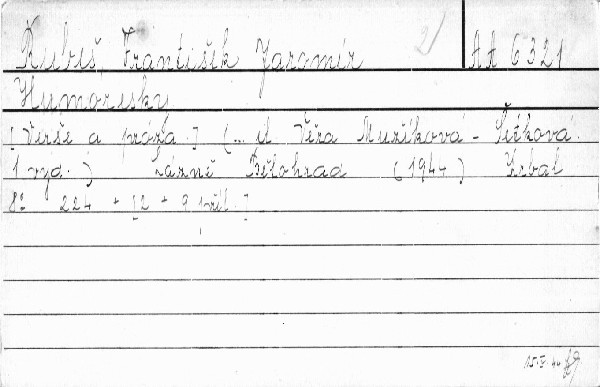 Kubiš, František Jaromír 2/ AA 6321
Humoresky
[Verše a próza.] (... il Věra Mužíková - Šičková.
1 vyd.) Lázně Bělohrad (1944) Hrbal
8° 224 + [2 + 9 příl.]